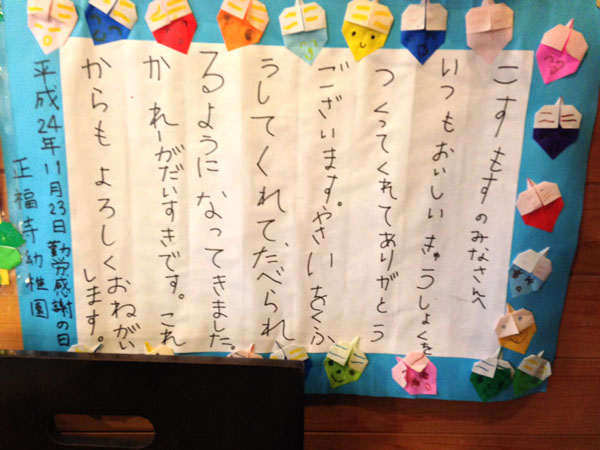 こすもすのみなさんへ
いつもおいしいきゅうしょくを
つくってくれてありがとう
ございます。やさいをくふ
うしてくれて、たべられ
るようになってきました。
かれーがだいすきです。これ
からもよろしくおねがい
します。
平成24年11月23日勤労感謝の日
正福寺幼稚園